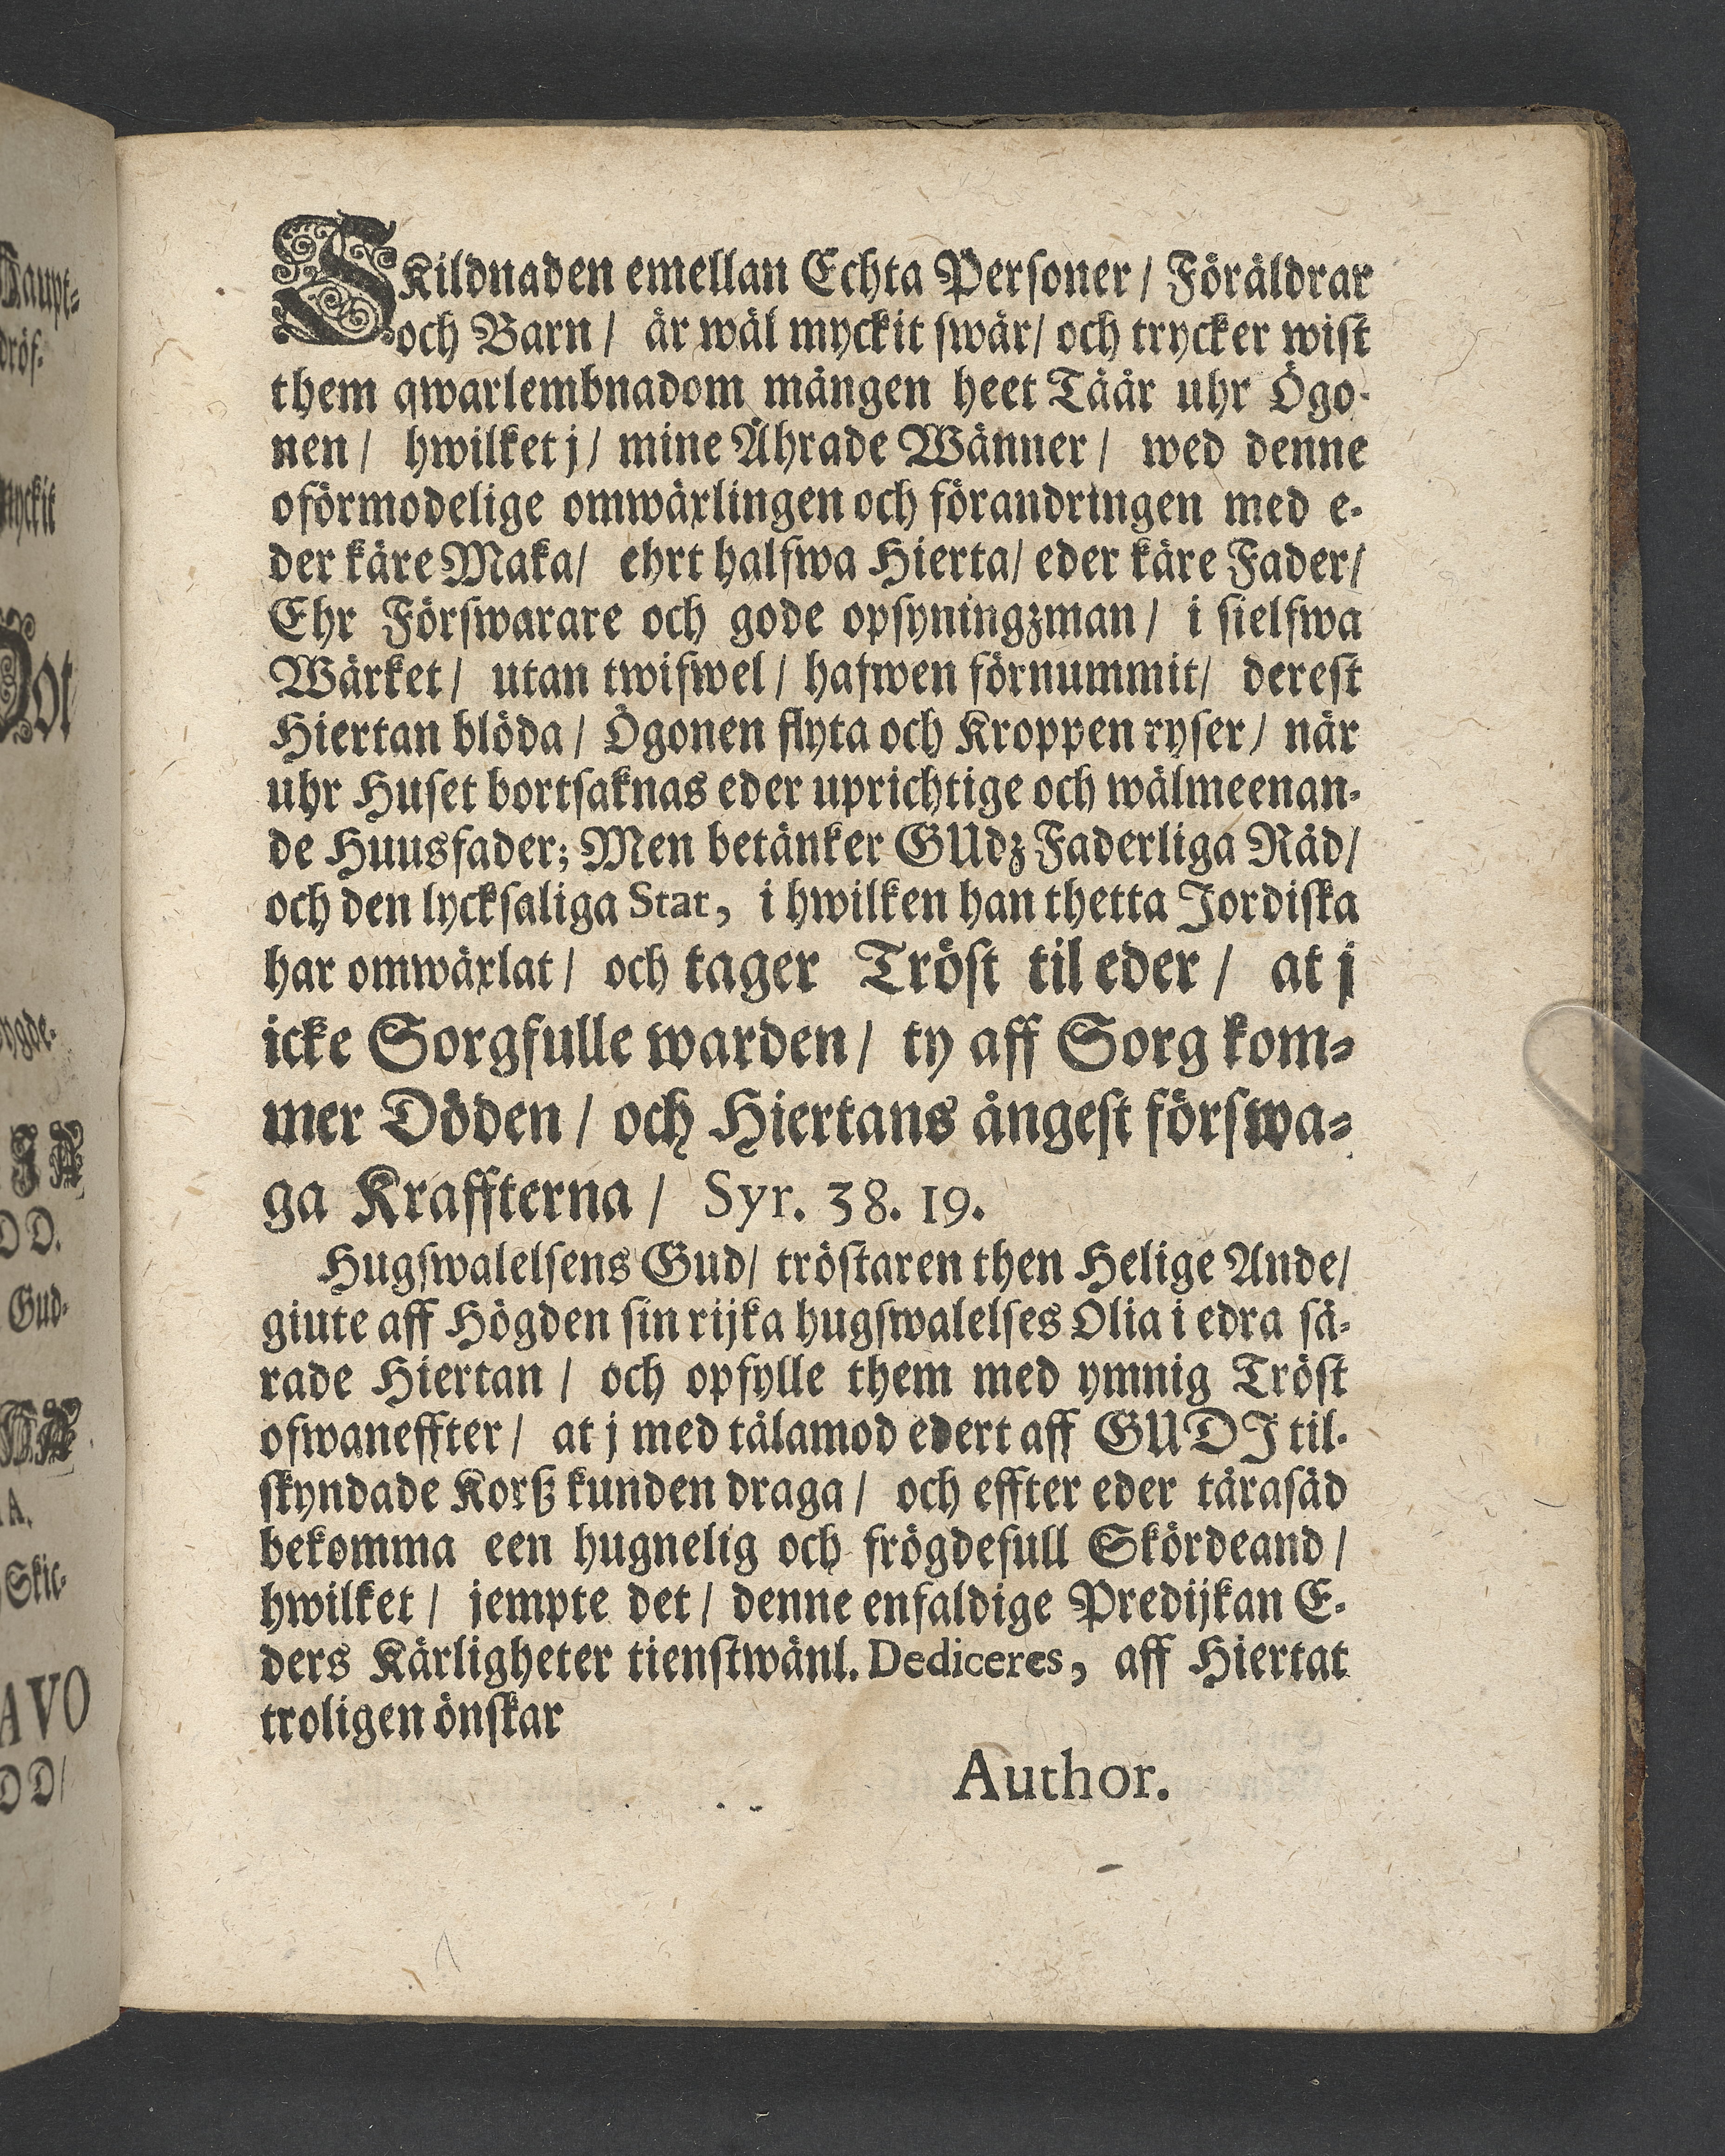 SKildnaden emellan Echta Personer / Föräldrar
och Barn / är wäl myckit swår / och trycker wist
them qwarlembnadom mången heet Tåår uhr Ögo-
nen / hwilket j / mine Ährade Wänner / wed denne
oförmodelige omwäxlingen och förandringen med e-
der käre Maka / ehrt halfwa Hierta / eder käre Fader /
Ehr Förswarare och gode opsyningzman / i sielfwa
Wärket / utan twifwel / hafwen förnummit / derest
Hiertan blöda / Ögonen flyta och Kroppen ryser / när
uhr Huset bortsaknas eder uprichtige och wälmeenan-
de Huusfader; Men betänker GUdz Faderliga Råd /
och den lycksaliga Stat, i hwilken han thetta Jordiska
har omwäxlat / och tager Tröst til eder / at j
icke Sorgfulle warden / ty aff Sorg kom-
mer Döden / och Hiertans ångest förswa-
ga Kraffterna / Syr. 38. 19.
Hugswalelsens Gud / tröstaren then Helige Ande /
giute aff Högden sin rijka hugswalelses Olia i edra så-
rade Hiertan / och opfylle them med ymnig Tröst
ofwaneffter / at j med tålamod edert aff GUDJ til-
skyndade Korß kunden draga / och effter eder tårasäd
bekomma een hugnelig och frögdefull Skördeand /
hwilket / jempte det / denne enfaldige Predijkan E-
ders Kärligheter tienstwänl. Dediceres, aff Hiertat
troligen önskar
Author.